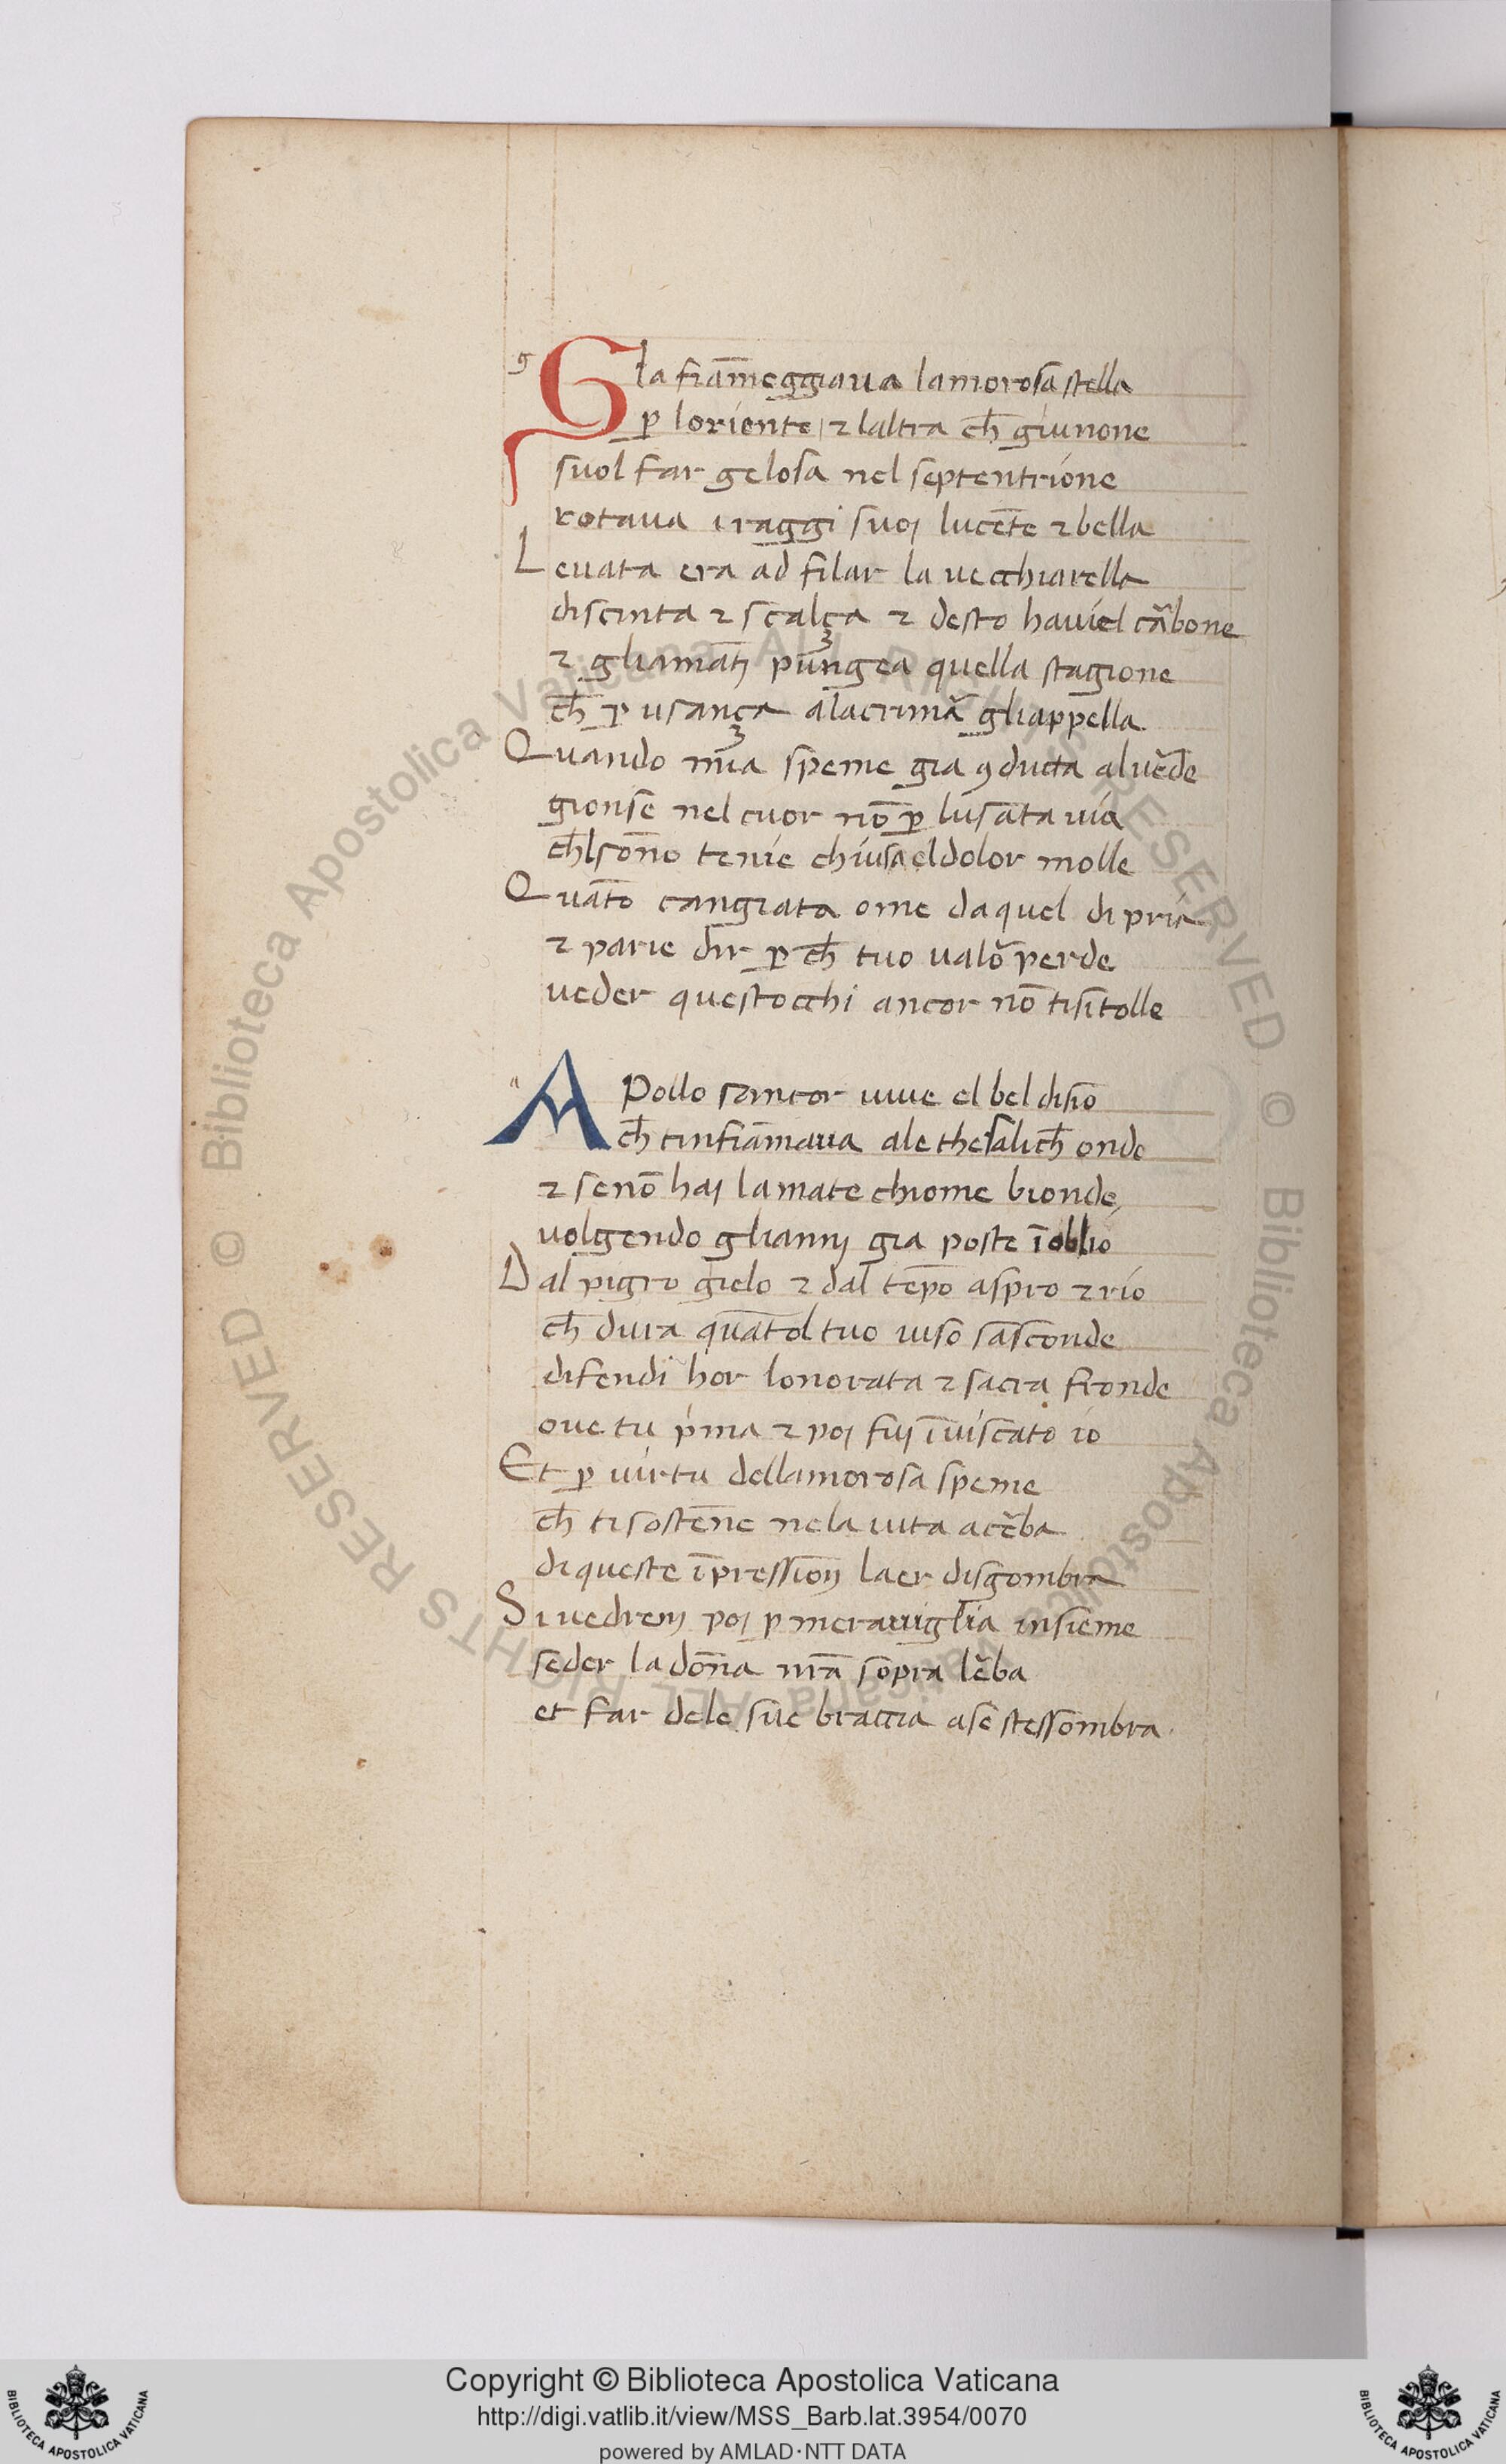 g
Gia fiam̄eggiaua lamorosa stella
ꝑ loriente / ⁊ laltra ch̄ giunone
suol far gelosa nel septentrione
rotaua i raggi suoj lucēte ⁊ bella
Leuata era ad filar la uecchiarella
discinta ⁊ scalça ⁊ desto hauiel cābone
⁊ gliamātj pungea quella stagione
ch̄ ꝑ usança alacrimā gliappella
Quando mia speme gia ꝯducta aluēde
gionse nel cuor nō ꝑ lusata uia
ch̄lson̄o tenie chiusa eldolor molle
Quāto cangiata ome daquel di pria
⁊ parie dir ꝑch̄ tuo ualō perde
ueder questocchi ancor nō tisi tolle
a
APollo sancor uiue el bel disio
ch̄ tinfiam̄aua ale thesalich̄ onde
⁊ senō haj lamate chiome bionde
uolgendo gliannj gia poste ī oblio
Dal pigro gielo ⁊ dal tēpo aspro ⁊ rio
ch̄ dura quātol tuo uiso sasconde
difendi hor lonorata ⁊ sacra fronde
oue tu pima ⁊ poj fuj īuiscato io
Et ꝑ uirtu dellamorosa speme
ch̄ ti sosten̄e nela uita acēba
di queste īpressionj laer disgombra
Si uedrenj poj ꝑ merauiglia insieme
seder la don̄a nr̄a sopra lēba
et far dele sue braccia ase stessombra
© Biblioteca Apostolica Vaticana ALL RIGHTS RESERVED
© Biblioteca Apostolica Vaticana ALL RIGHTS RESERVED
Copyright © Biblioteca Apostolica Vaticana
http://digi.vatlib.it/view/MSS_Barb.lat.3954/0070
powered by AMLAD·NTT DATA
BIBLIOTECA APOSTOLICA VATICANA
BIBLIOTECA APOSTOLICA VATICANA